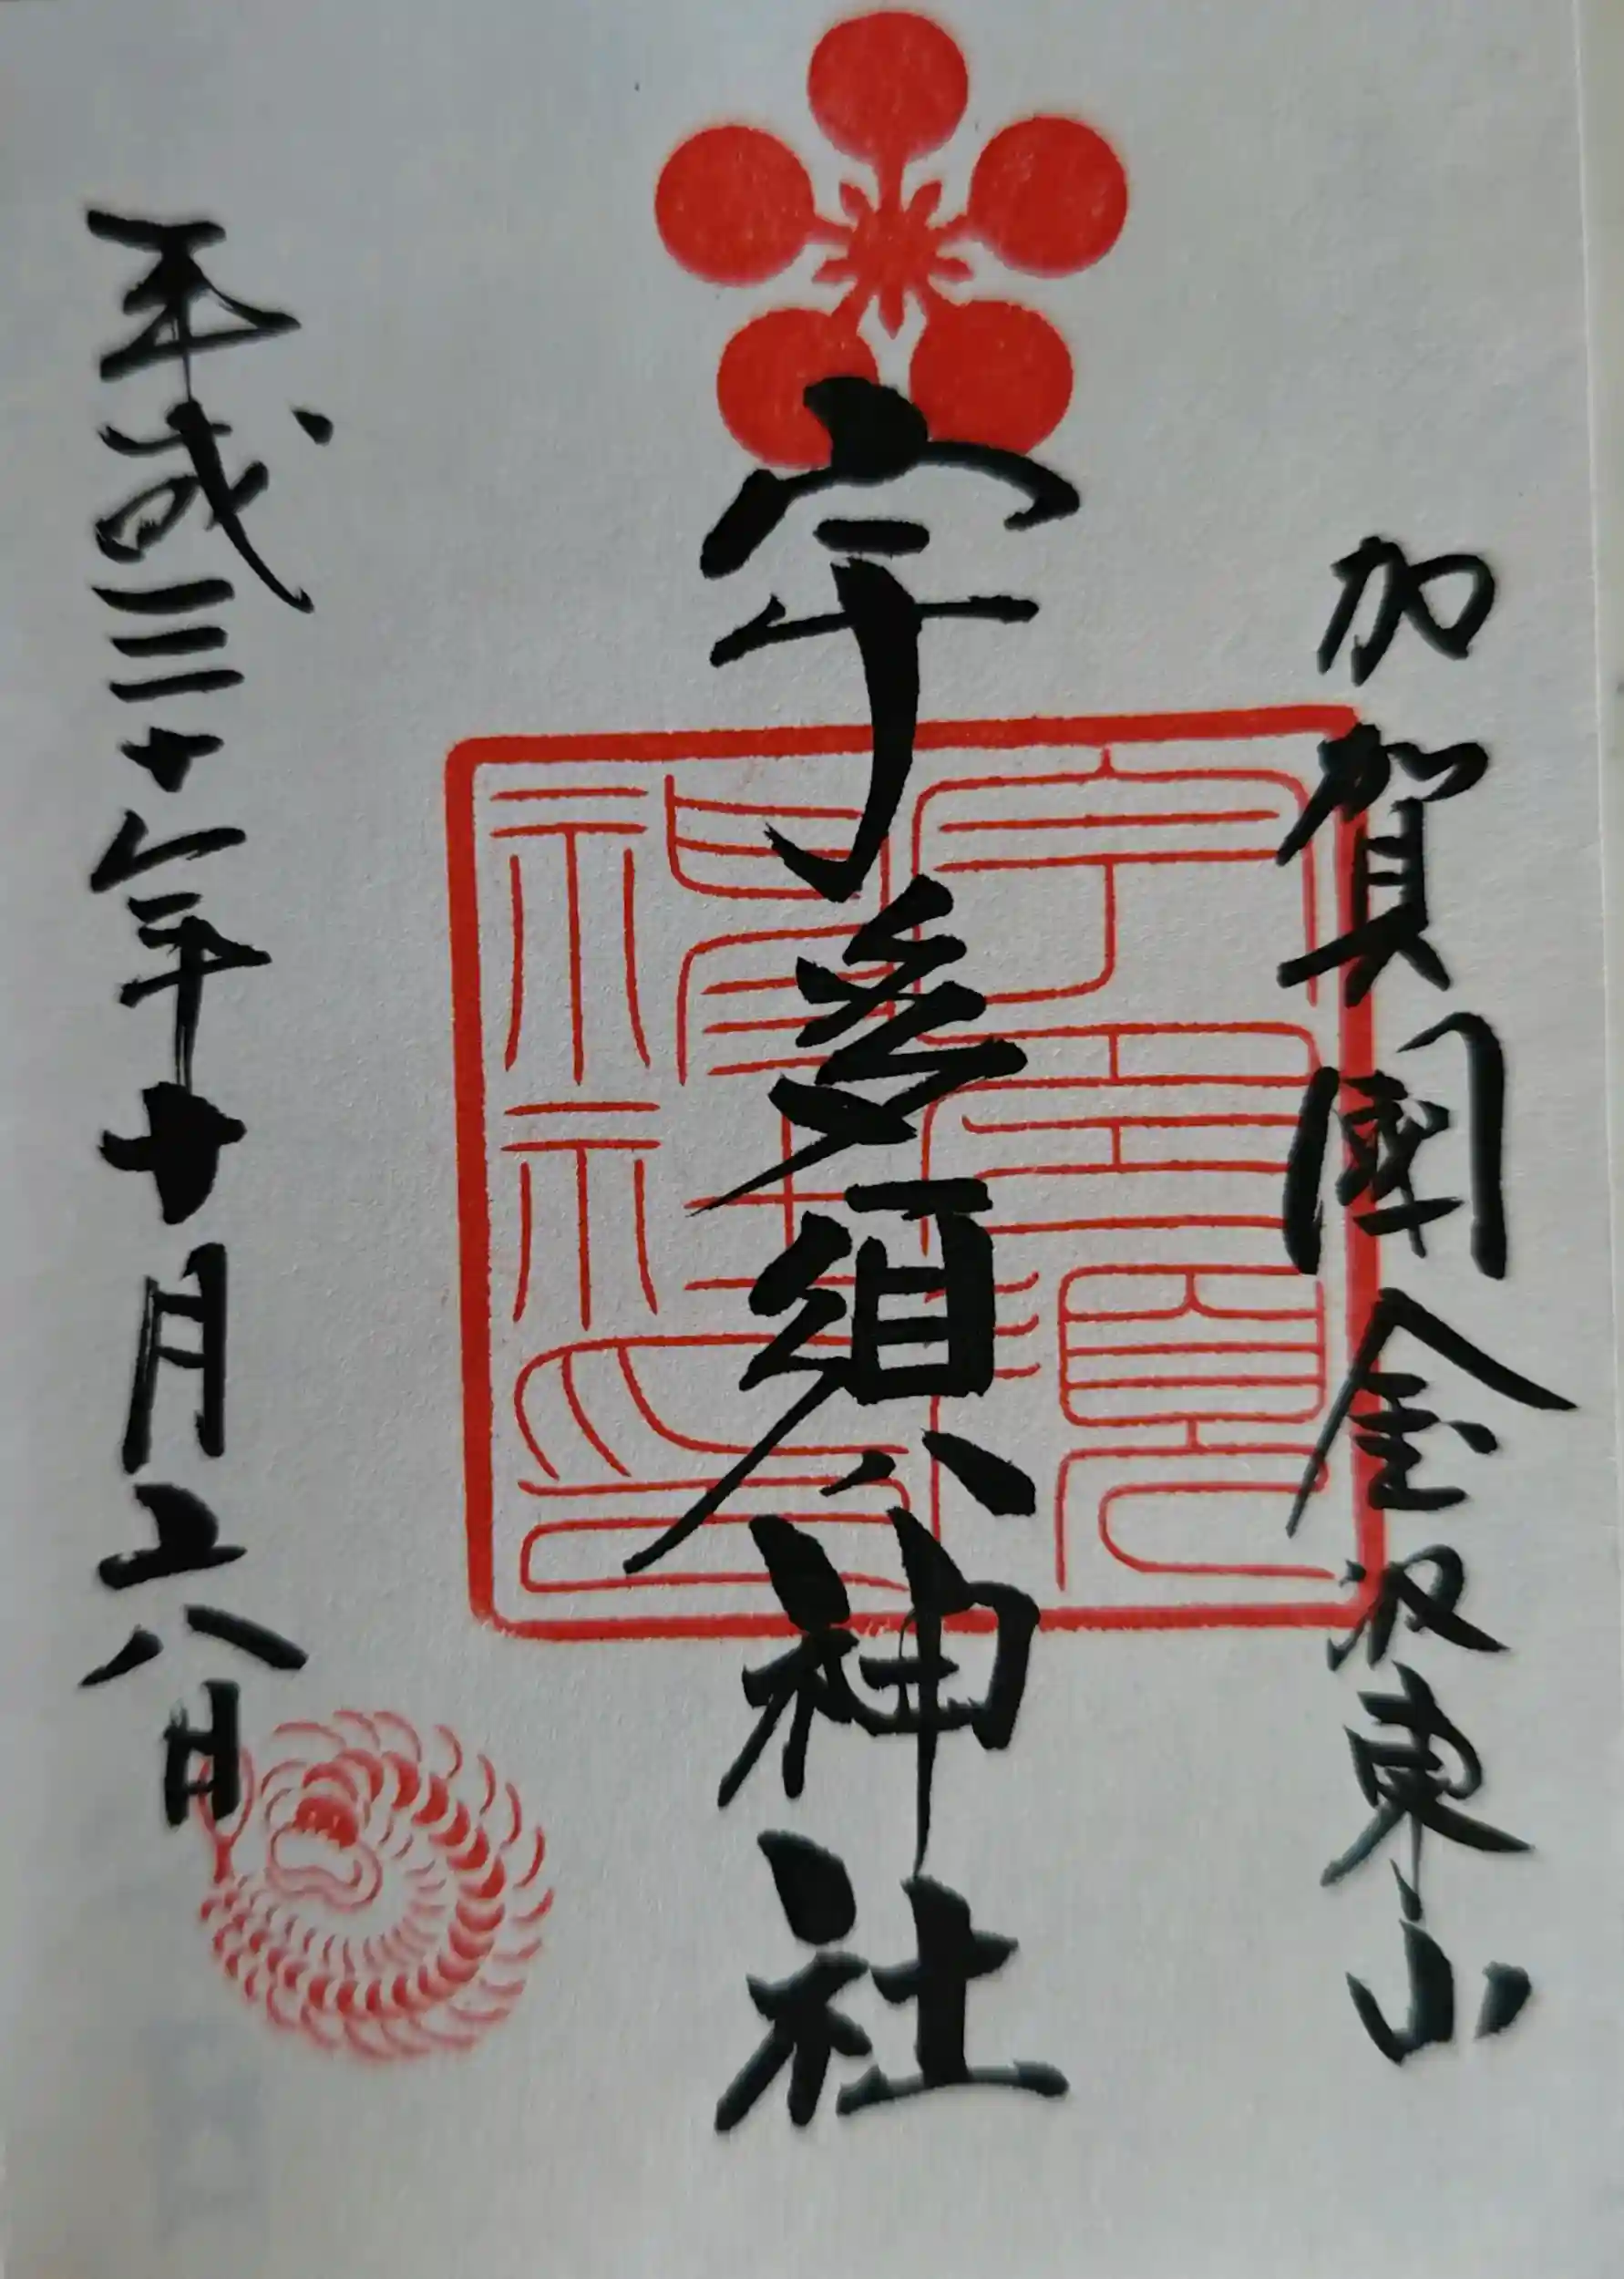 加賀國金沢東山
宇多須神社
宇多須
神社印
平成三十年十月二八日